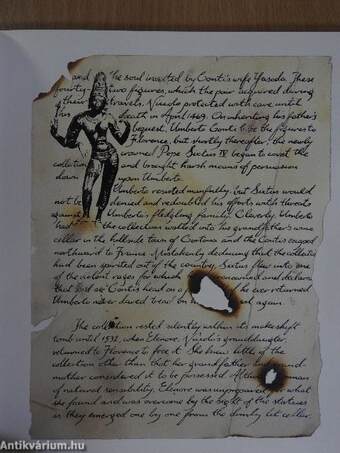 and The soul invested by Conti's wife Yasoda. These
twenty two figures, which the pair acquired during
their travels, Nicolo protected with care until
his death in April 1469. On inheriting his father's
bequest, Umberto Conti the figures to
Florence, but shortly thereafter the newly
crowned Pope Sixtus IV began to covet the
collection and brought harsh means of persuasion
down upon Umberto.
Umberto resisted manfully, but Sixtus would
not be denied and redoubled his efforts with threats
against Umberto's fledgling family. Cleverly, Umberto
had the collection walled into his grandfather's wine
cellar in the hillside town of Cortona and the Contis escaped
northward to France. Mistakenly declaring that the collection
had been spirited out of the country, Sixtus flew into one
of the violent rages for which he and declared
that he'd see Conti's head on a if he ever returned.
Umberto never dared tread on again.
The collection rested silently within its makeshift
tomb until 1532, when Elenore, Nicolo's granddaughter,
returned to Florence to free it. She knew little of the
collection other than that her grandfather and grand-
mother considered it to be possessed. Although a woman
of natural sensibility, Elenore was unprepared for what
she found and was overcome by the sight of the statues
as they emerged one by one from the dimly lit cellar.
Antikvárium.hu
www.antikvarium.hu